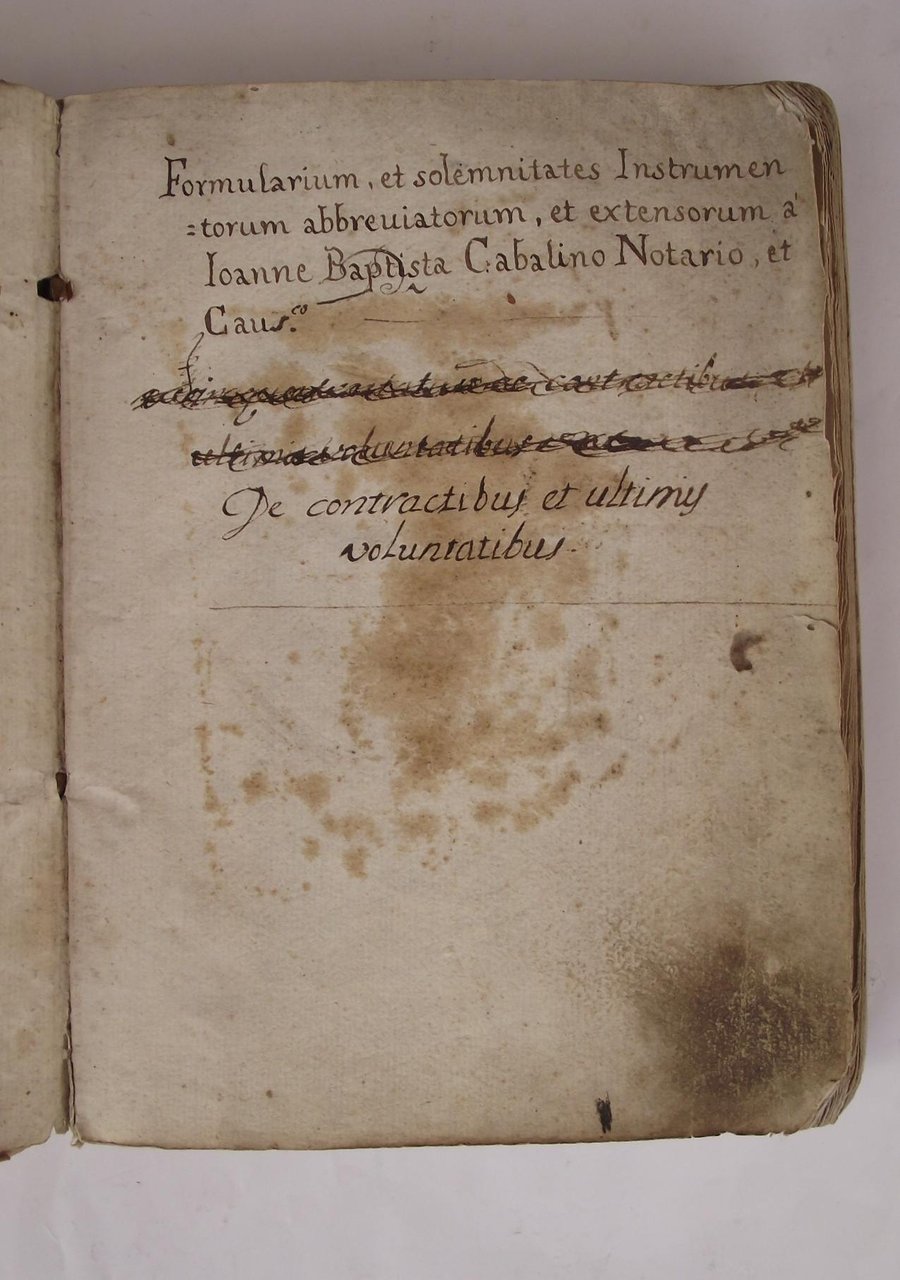 Formularium, et solemnitates Instrumen
=torum abbreviatorum, et extensorum à
Ioanne Baptista Cabalino Notario, et
Caus.co
contractibus
ultimis voluntatibus
De contractibus et ultimis
voluntatibus.